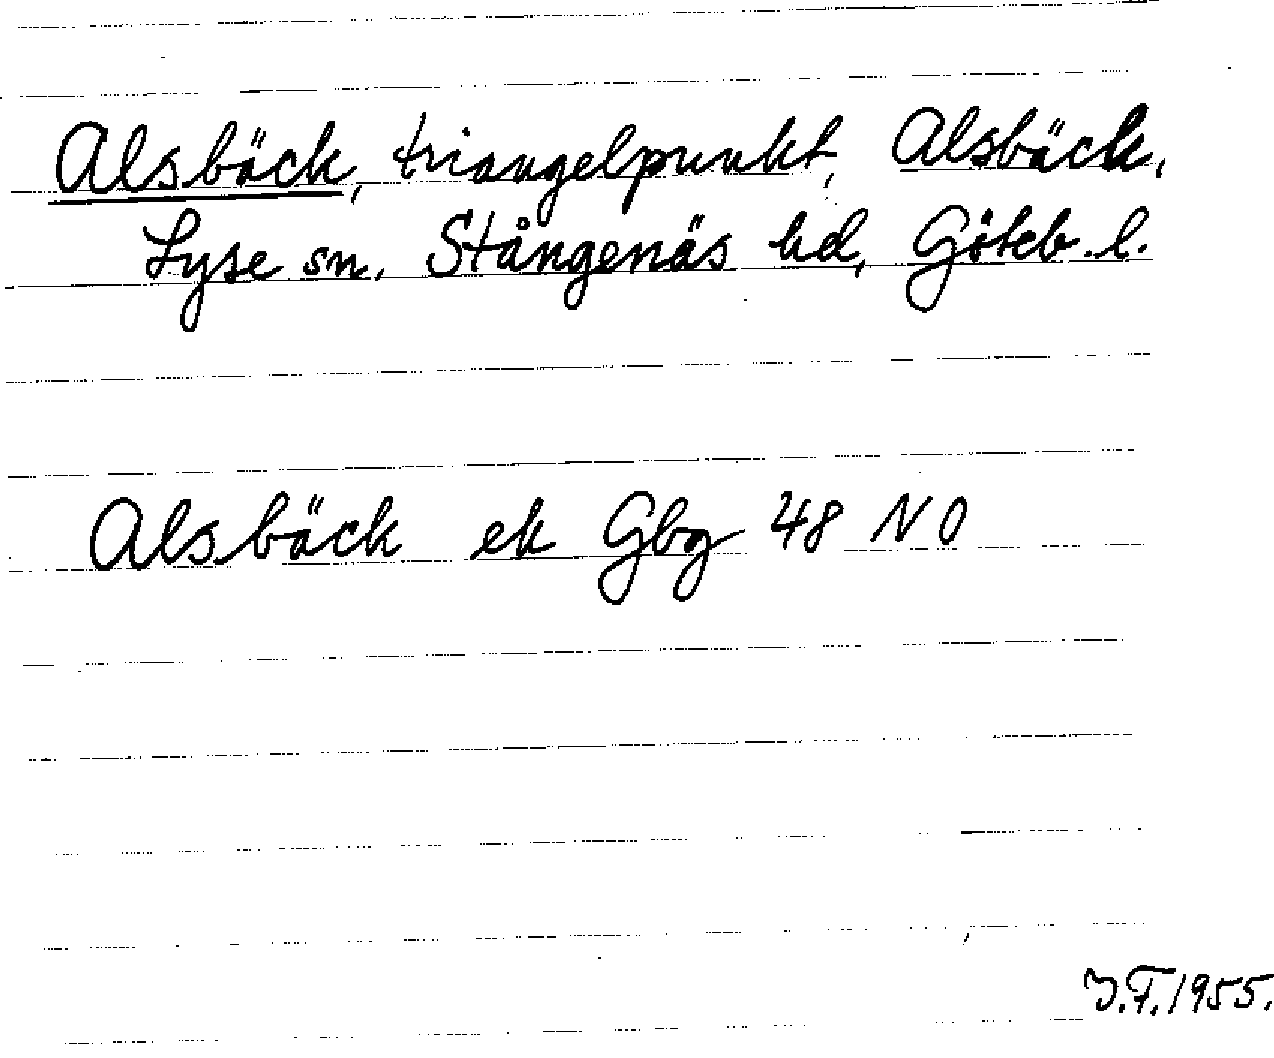 Alsbäck, triangelpunkt, Alsbäck,
Lyse sn, Stångenäs hd, Göteb. l.
Alsbäck ek Gbg 48 NO
J.F. 1955.